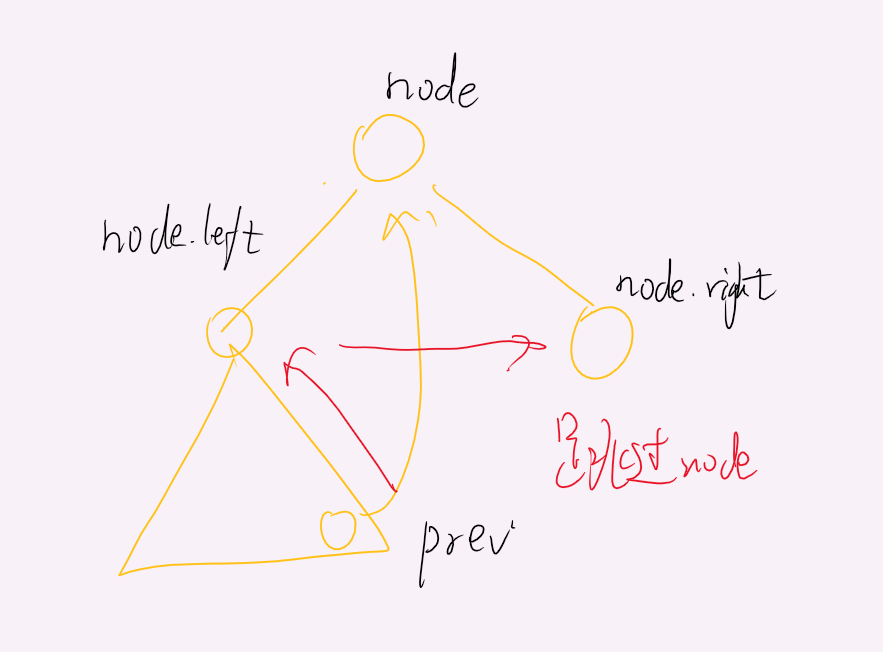 node
node.left
node.right
node
prev